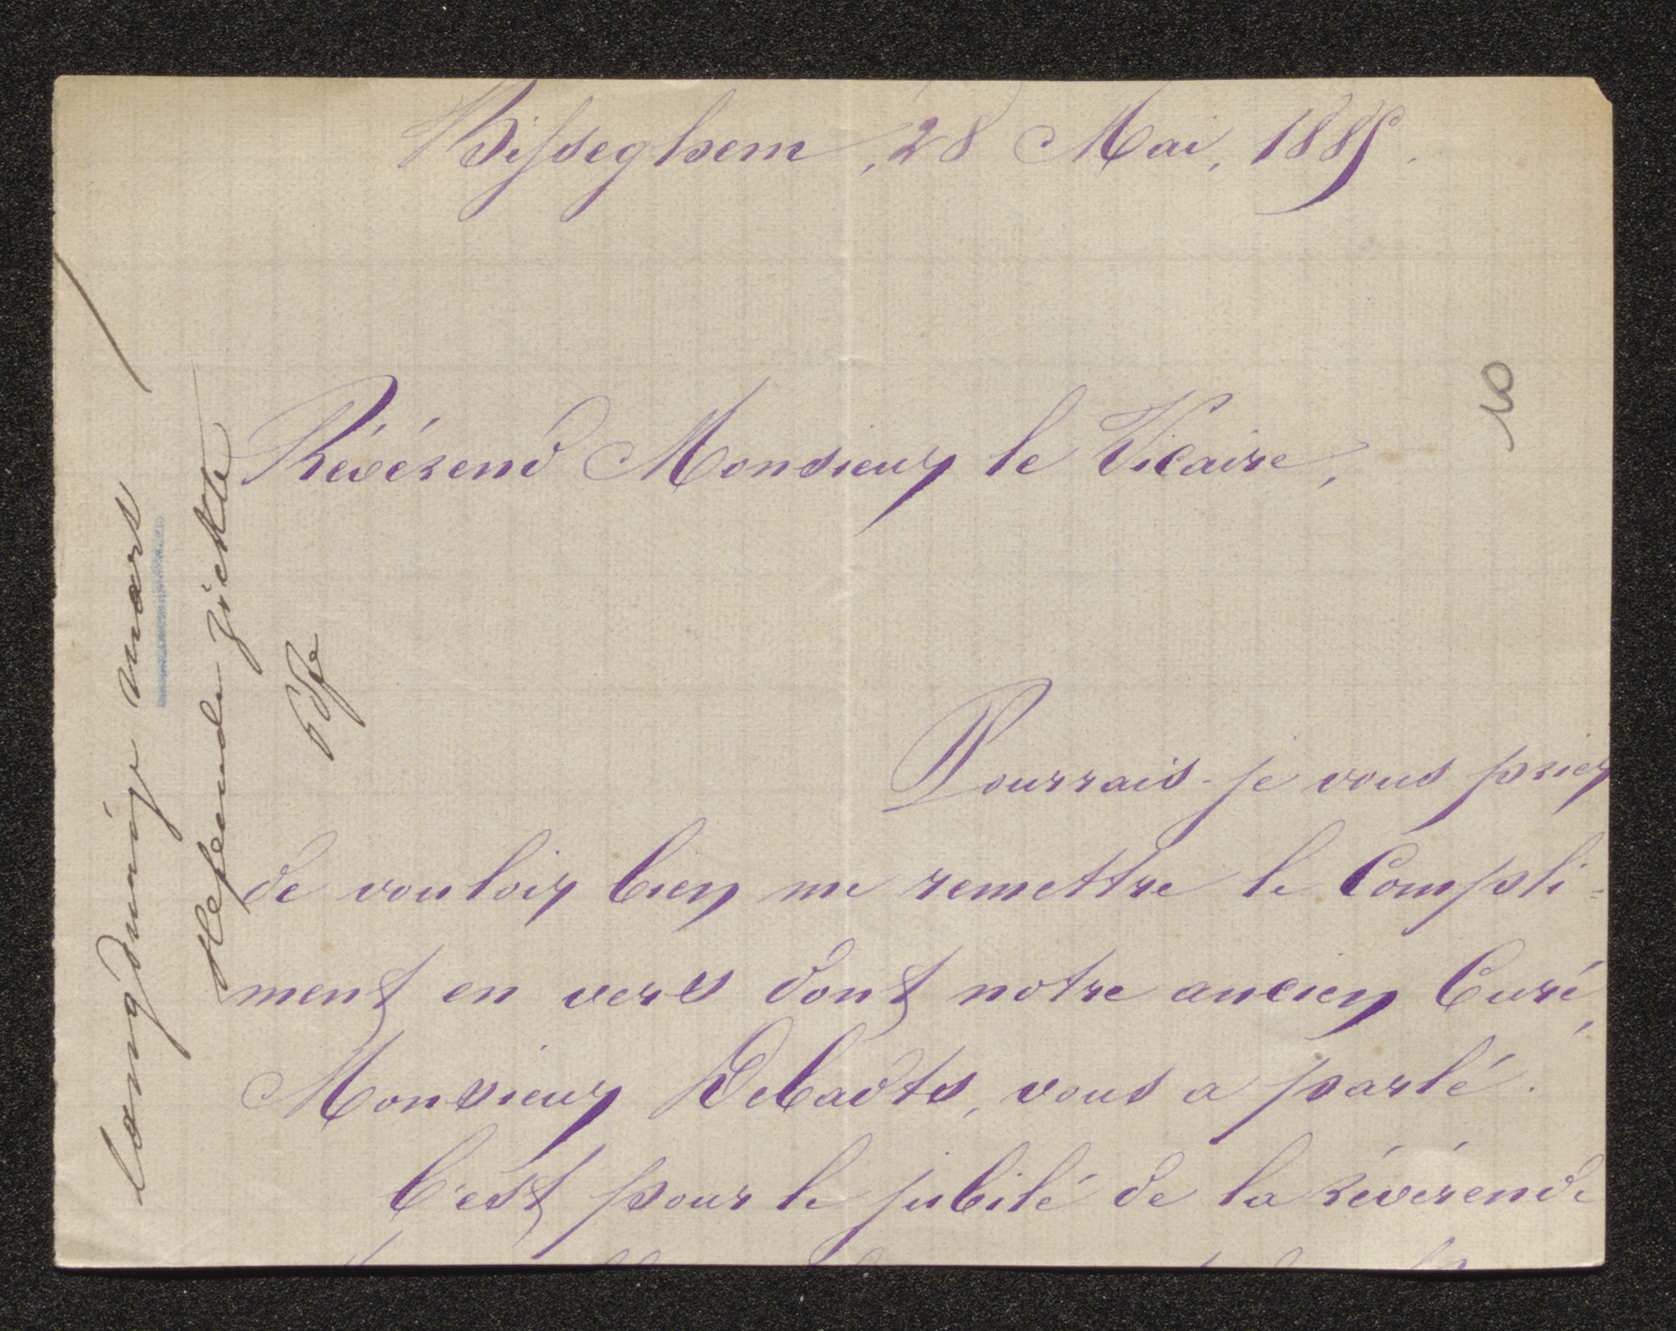 Bisseghem, 28 Mai, 1885.
Révérend Monsieur le Vicaire,
Pourrais-je vous prier
de vouloir bien me remettre le Compli=
ment en vers dont notre ancien Curé,
Monsieur Debadts, vous a parlé.
C'est pour le jubilé de la révérende
langdunig mars
slepende ziekte
10